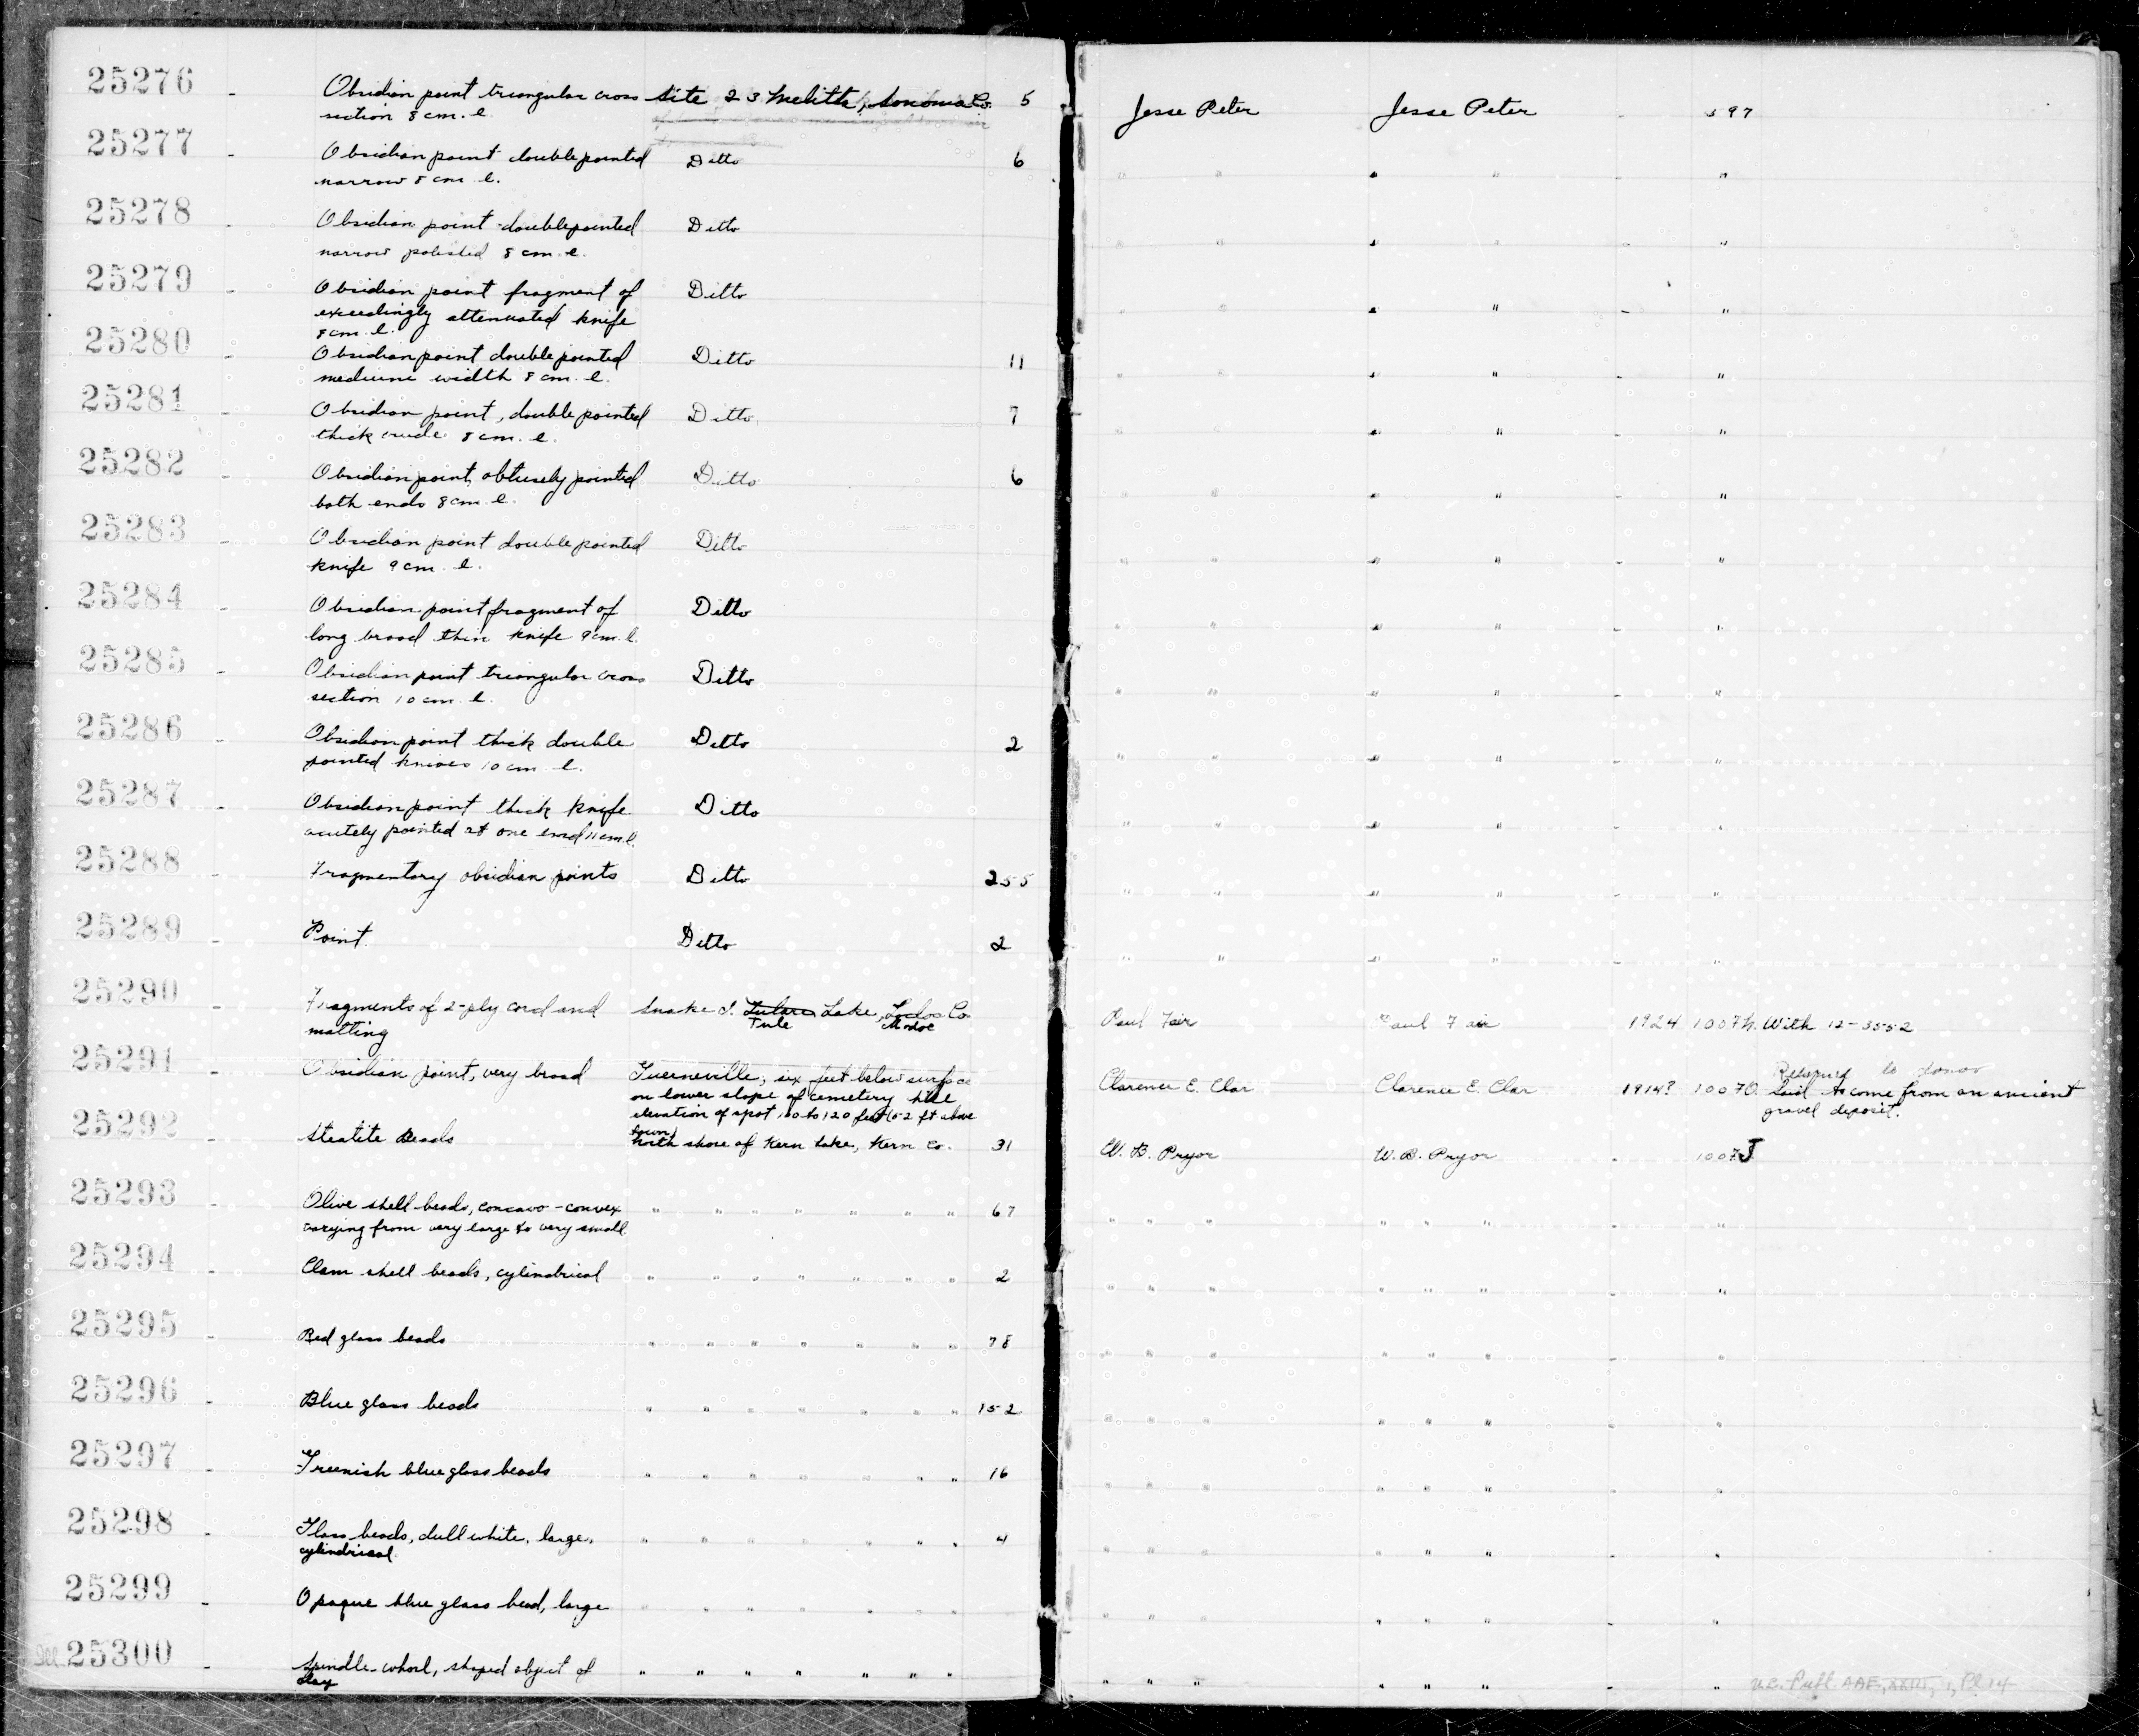 25276 - Obsidian point triangular cross site 23 Melitta, Sonoma Co. 5 Jesse Peter Jesse Peter - 597
section 8 cm. l.
25277 - Obsidian point double pointed Ditto 6 " " " " - "
narrow 8 cm. l.
25278 - Obsidian point double pointed Ditto " " " " - "
narrow polished 8 cm. l.
25279 - Obsidian point fragment of Ditto " " " " - "
exceedingly attenuated knife
8 cm. l.
25280 - Obsidian point double pointed Ditto 11 " " " " - "
medium width 8 cm. l.
25281 - Obsidian point, double pointed Ditto 7 " " " " - "
thick crude 8 cm. l.
25282 - Obsidian point, obtusely pointed Ditto 6 " " " " - "
both ends 8 cm. l.
25283 - Obsidian point double pointed Ditto " " " " - "
knife 9 cm. l.
25284 - Obsidian point fragment of Ditto " " " " - "
long broad thin knife 9 cm. l.
25285 - Obsidian point triangular cross Ditto " " " " - "
section 10 cm. l.
25286 - Obsidian point thick double Ditto 2 " " " " - "
pointed knives 10 cm. l.
25287 - Obsidian point thick knife Ditto " " " " - "
acutely pointed at one end 11 cm. l.
25288 - Fragmentary obsidian points Ditto 255 " " " " - "
25289 - Point. Ditto 2 " " " " - "
25290 - Fragments of 2-ply cord and Snake I. Tulare Lake, Co. Paul Fair Paul Fair 1924 1007h. With 12-3552
matting Tule Modoc
25291 - Obsidian point, very broad Guerneville; six feet below surface Clarence E. Clar Clarence E. Clar 1914? 1007O. Returned to donor
on lower slope of cemetery hill Said to come from an ancient
elevation of spot 100 to 120 feet (52 ft above gravel deposit.
town)
25292 - Steatite Beads North shore of Kern Lake, Kern Co. 31 W. B. Pryor W. B. Pryor - 1007J
25293 - Olive shell beads, concavo-convex " " " " " " " 67 " " " " " " - "
varying from very large to very small
25294 - Clam shell beads, cylindrical " " " " " " " 2 " " " " " " - "
25295 - Red glass beads " " " " " " " 78 " " " " " " - "
25296 - Blue glass beads " " " " " " " 152 " " " " " " - "
25297 - Greenish blue glass beads " " " " " " " 16 " " " " " " - "
25298 - Glass beads, dull white, large, " " " " " " " 4 " " " " " " - "
cylindrical.
25299 - Opaque blue glass bead, large " " " " " " " " " " " " " - "
25300 - Spindle-whorl, shaped object of " " " " " " " " " " " " " - " U.C. Publ. AAE, XXIII, 1, Pl 14
clay